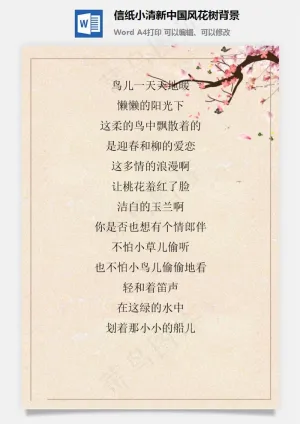 信纸小清新中国风花树背景
Word A4打印 可以编辑、可以修改
鸟儿一天天地暖
懒懒的阳光下
这柔的鸟中飘散着的
是迎春和柳的爱恋
这多情的浪漫啊
让桃花羞红了脸
洁白的玉兰啊
你是否也想有个情郎伴
不怕小草儿偷听
也不怕小鸟儿偷偷地看
轻和着笛声
在这绿的水中
划着那小小的船儿